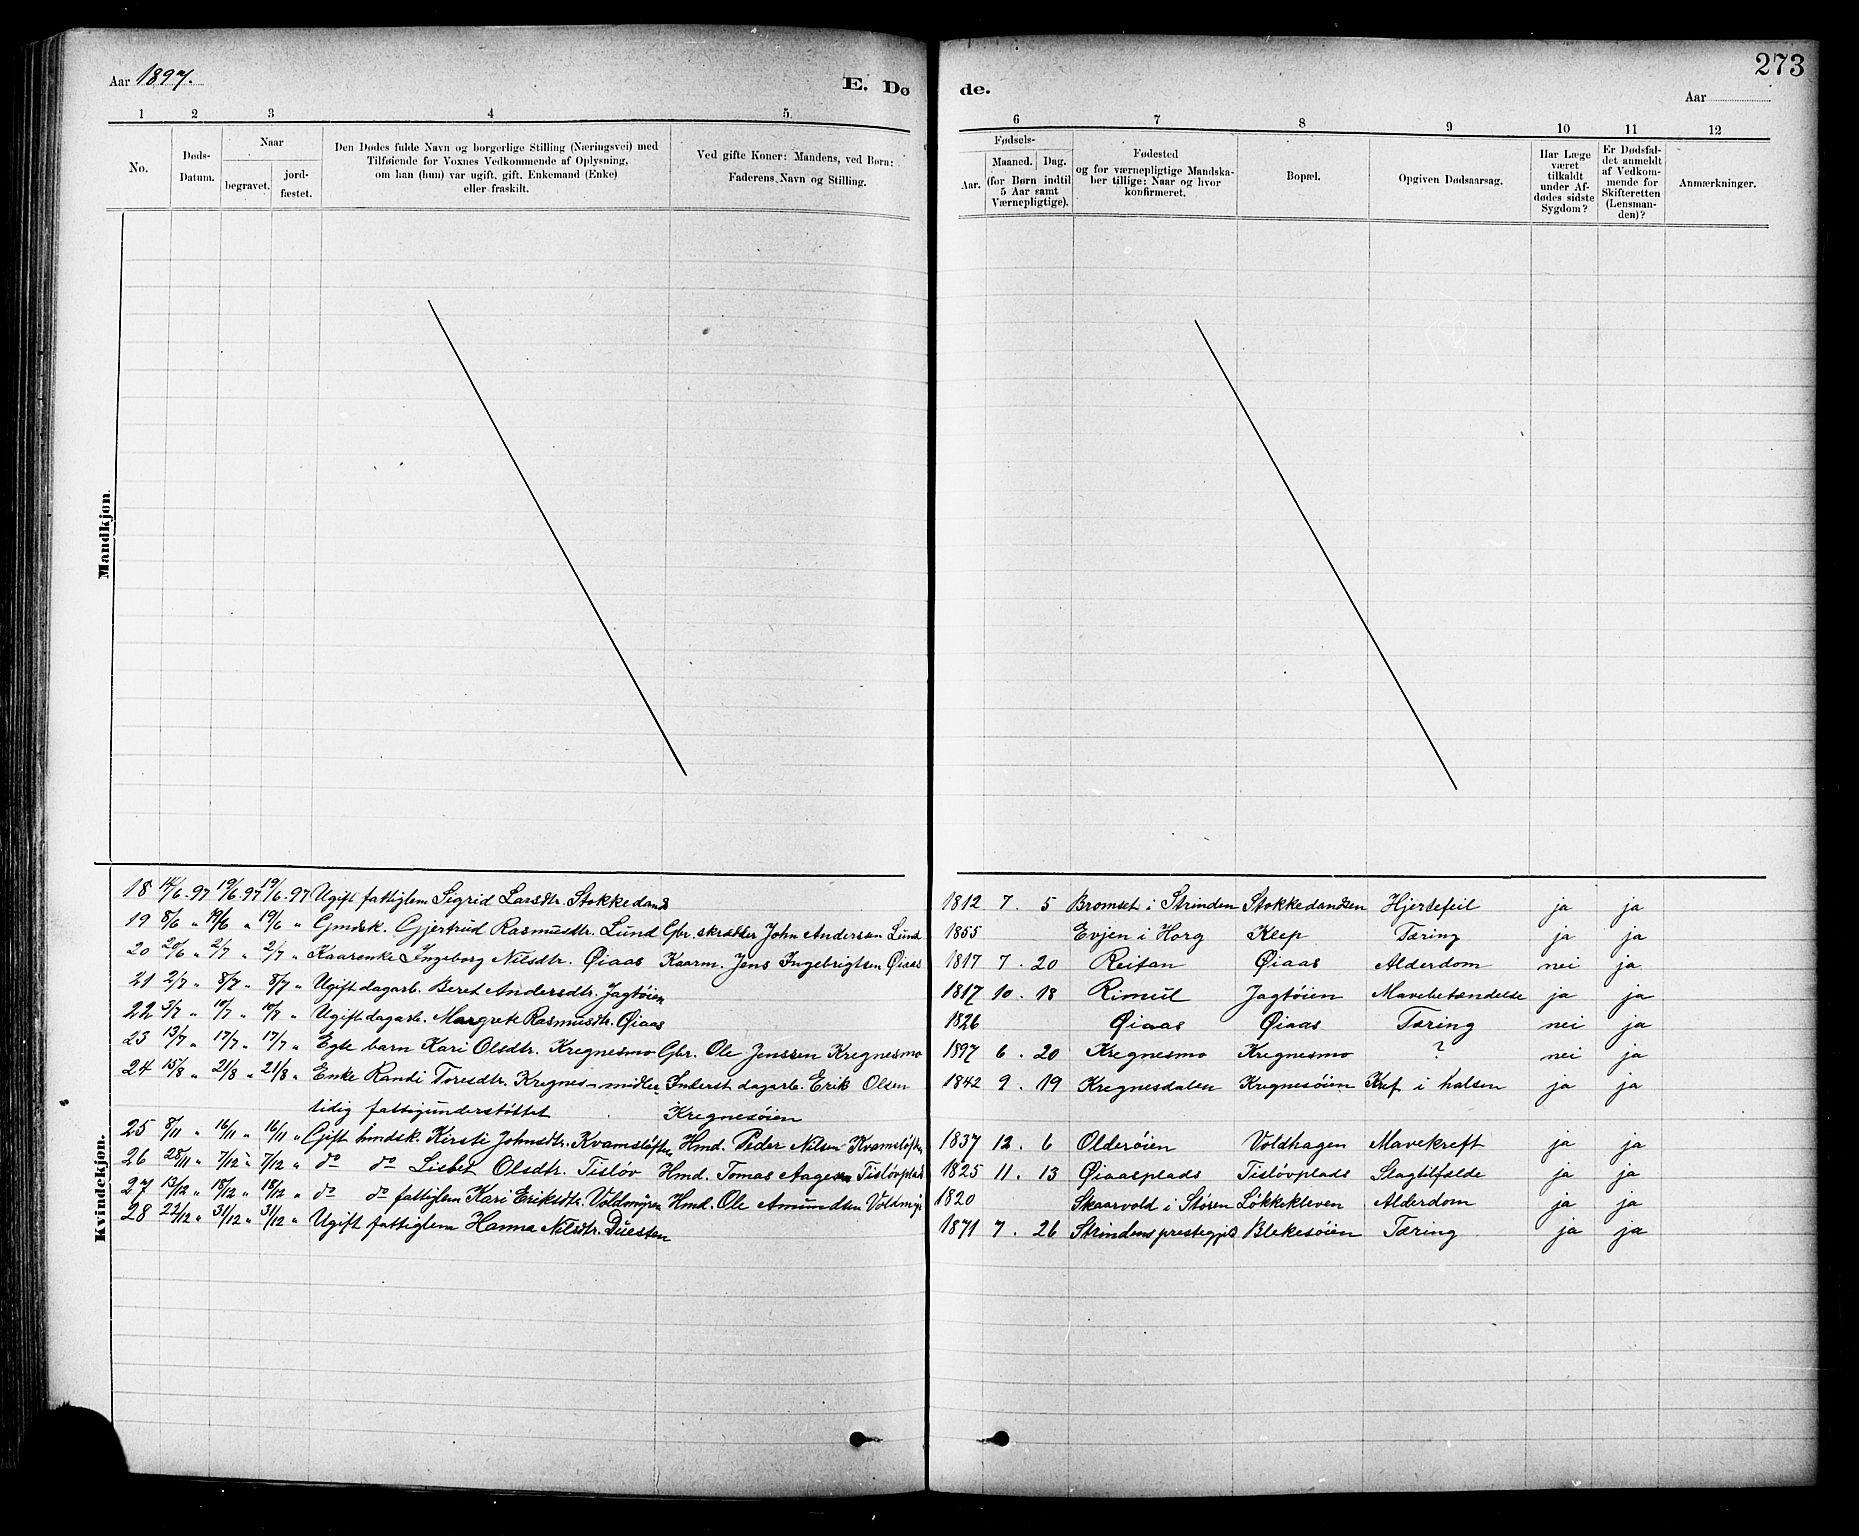 Aar 1897.
E. Dø
de.
273
Aar
1 2 3 4 5.
6 7 8 9 10 11 12
No.
Døds-Datum.
Naar
begravet.
jord-fæstet.
Den Dødes fulde Navn og borgerlige Stilling (Næringsvei) med
Tilføiende for Voxnes Vedkommende af Oplysning,
om han (hun) var ugift, gift, Enkemand (Enke)
eller fraskilt.
Ved gifte Koner: Mandens, ved Børn:
Faderens Navn og Stilling.
Fødsels-
Aar.
Maaned. Dag.
(for Børn indtil
5 Aar samt
Værnepligtige).
Fødested
og for værnepligtige Mandska-
ber tillige: Naar og hvor
konfirmeret.
Bopæl.
Opgiven Dødsaarsag.
Har Læge
været
tilkaldt
under Af-
dødes sidste
Sygdom?
Er Dødsfal-
det anmeldt
af Vedkom-
mende for
Skifteretten
(Lensman-
den)?
Anmærkninger.
Mandkjøn.
Kvindekjøn.
18 14/6.97 19/6.97 19/6.97 Ugift fattiglem Sigrid Larsdtr. Stokkedands 1812 7. 5 Bromset i Strinden Stokkedandsen Hjertefeil ja ja
19 8/6 " 19/6 " 19/6 " Gmdsk. Gjertrud Rasmusdtr. Lund Gbr. skrædder John Andersen Lund 1855 Evjen i Horg Klep Tæring ja ja
20 20/6 " 2/7 " 2/7 " Kaarenke Ingeborg Nilsdtr. Øiaas Kaarm. Jens Ingebrigtsen Øiaas 1817 7. 20 Reitan Øiaas Alderdom nei ja
21 2/7 " 8/7 " 8/7 " Ugift dagarb. Beret Andersdtr. Jagtöien 1817 10. 18 Rimul Jagtöien Mavebetændelse ja ja
22 3/7 " 10/7 " 10/7 " Ugift dagarb. Margrete Rasmusdtr. Øiaas 1826 Øiaas Øiaas Tæring nei ja
23 13/7 " 17/7 " 17/7 " Egte barn Kari Olsdtr. Kregnesmo Gbr. Ole Jenssen Kregnesmo 1897 6. 20 Kregnesmo Kregnesmo ? nei ja
24 15/8 " 21/8 " 21/8 " Enke Randi Toresdtr. Kregnes - midler- Inderst dagarb. Erik Olsen 1842 9. 19 Kregnesdalen Kregnesöien Kref i halsen ja ja
tidig fattigunderstöttet Kregnesöien
25 8/11 " 16/11 " 16/11 " Gift hmdsk. Kirsti Johnsdtr. Kvamslöften Hmd. Peder Nilsen Kvamslöften 1837 12. 6 Olderöien Voldhagen Mavekreft ja ja
26 28/11 " 7/12 " 7/12 " do do Lisbet Olsdtr. Tislöv Hmd. Tomas Aagesen Tislövplads 1825 11. 13 Øiaasplads Tislövplads Slagtilfælde ja ja
27 13/12 " 18/12 " 18/12 " do do fattiglem Kari Eriksdtr. Voldmyren Hmd. Ole Amundsen Voldmyr 1820 Skaarvold i Stören Lökkekleven Alderdom ja ja
28 22/12 " 31/12 " 31/12 " Ugift fattiglem Hanna Nilsdtr. Duesten 1871 7. 26 Strindens prestegjd Blekesöien Tæring ja ja